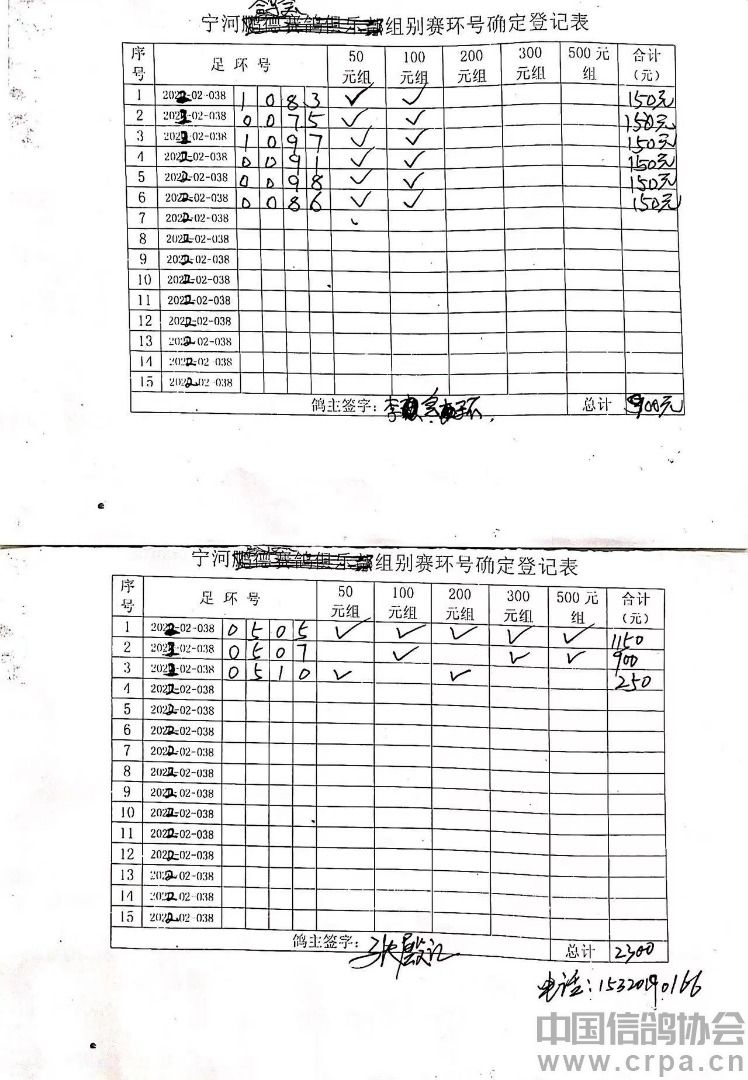 鸽会
宁河鹏德赛鸽俱乐部组别赛环号确定登记表
序号 足环号 50元组 100元组 200元组 300元组 500元组 合计（元）
1 2022-02-038 1083 ✓ ✓ 150元
2 2022-02-038 0075 ✓ ✓ 150元
3 2022-02-038 1097 ✓ ✓ 150元
4 2022-02-038 0091 ✓ ✓ 150元
5 2022-02-038 0098 ✓ ✓ 150元
6 2022-02-038 0086 ✓ ✓ 150元
7 2022-02-038
8 2022-02-038
9 2022-02-038
10 2022-02-038
11 2022-02-038
12 2022-02-038
13 2022-02-038
14 2022-02-038
15 2022-02-038
鸽主签字：李 总计 900元
宁河鹏德赛鸽俱乐部组别赛环号确定登记表
序号 足环号 50元组 100元组 200元组 300元组 500元组 合计（元）
1 2022-02-038 0505 ✓ ✓ ✓ ✓ ✓ 1150
2 2022-02-038 0507 ✓ ✓ ✓ 900
3 2022-02-038 0510 ✓ ✓ 250
4 2022-02-038
5 2022-02-038
6 2022-02-038
7 2022-02-038
8 2022-02-038
9 2022-02-038
10 2022-02-038
11 2022-02-038
12 2022-02-038
13 2022-02-038
14 2022-02-038
15 2022-02-038
鸽主签字： 总计 2300
电话：15320190166
中国信鸽协会
www.crpa.cn